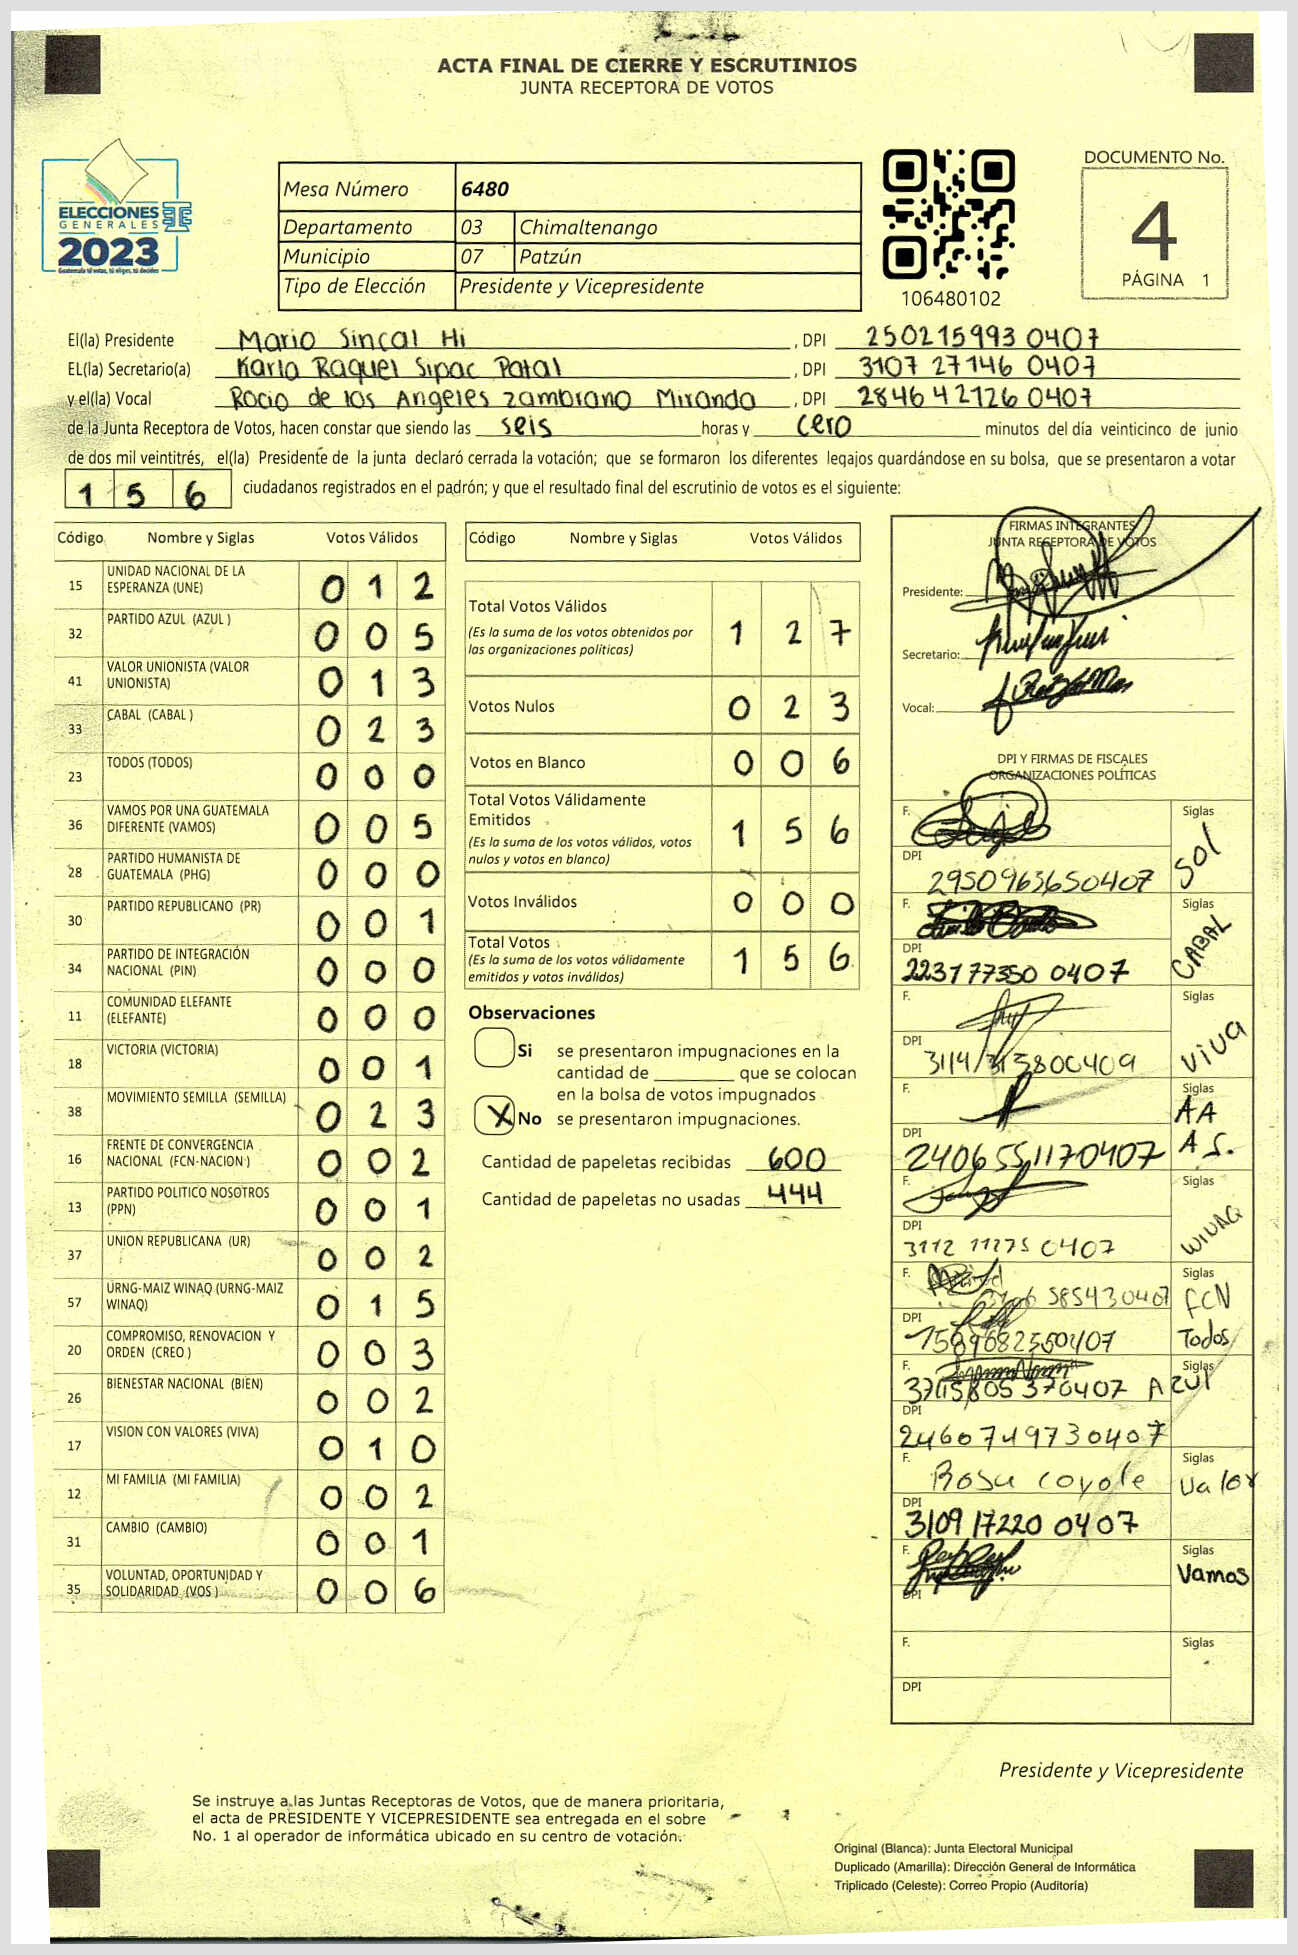 ACTA FINAL DE CIERRE Y ESCRUTINIOS
JUNTA RECEPTORA DE VOTOS
ELECCIONES
GENERALES
2023
Guatemala tú votas, tú eliges, tú decides
Mesa Número 6480
Departamento 03 Chimaltenango
Municipio 07 Patzún
Tipo de Elección Presidente y Vicepresidente
106480102
DOCUMENTO No.
4
PÁGINA 1
El(la) Presidente Mario Sincal Hi , DPI 250215993 0407
EL(la) Secretario(a) Karla Raquel Sipac Patal , DPI 3107 27146 0407
y el(la) Vocal Rocio de los Angeles Zambrano Miranda , DPI 2846 42126 0407
de la Junta Receptora de Votos, hacen constar que siendo las seis horas y cero minutos del día veinticinco de junio
de dos mil veintitrés, el(la) Presidente de la junta declaró cerrada la votación; que se formaron los diferentes legajos guardándose en su bolsa, que se presentaron a votar
1 5 6 ciudadanos registrados en el padrón; y que el resultado final del escrutinio de votos es el siguiente:
Código Nombre y Siglas Votos Válidos
15 UNIDAD NACIONAL DE LA ESPERANZA (UNE) 0 1 2
32 PARTIDO AZUL (AZUL ) 0 0 5
41 VALOR UNIONISTA (VALOR UNIONISTA) 0 1 3
33 CABAL (CABAL ) 0 2 3
23 TODOS (TODOS) 0 0 0
36 VAMOS POR UNA GUATEMALA DIFERENTE (VAMOS) 0 0 5
28 PARTIDO HUMANISTA DE GUATEMALA (PHG) 0 0 0
30 PARTIDO REPUBLICANO (PR) 0 0 1
34 PARTIDO DE INTEGRACIÓN NACIONAL (PIN) 0 0 0
11 COMUNIDAD ELEFANTE (ELEFANTE) 0 0 0
18 VICTORIA (VICTORIA) 0 0 1
38 MOVIMIENTO SEMILLA (SEMILLA) 0 2 3
16 FRENTE DE CONVERGENCIA NACIONAL (FCN-NACION ) 0 0 2
13 PARTIDO POLITICO NOSOTROS (PPN) 0 0 1
37 UNION REPUBLICANA (UR) 0 0 2
57 URNG-MAIZ WINAQ (URNG-MAIZ WINAQ) 0 1 5
20 COMPROMISO, RENOVACION Y ORDEN (CREO ) 0 0 3
26 BIENESTAR NACIONAL (BIEN) 0 0 2
17 VISION CON VALORES (VIVA) 0 1 0
12 MI FAMILIA (MI FAMILIA) 0 0 2
31 CAMBIO (CAMBIO) 0 0 1
35 VOLUNTAD, OPORTUNIDAD Y SOLIDARIDAD (VOS ) 0 0 6
Código Nombre y Siglas Votos Válidos
Total Votos Válidos 1 2 7
(Es la suma de los votos obtenidos por
las organizaciones políticas)
Votos Nulos 0 2 3
Votos en Blanco 0 0 6
Total Votos Válidamente
Emitidos 1 5 6
(Es la suma de los votos válidos, votos
nulos y votos en blanco)
Votos Inválidos 0 0 0
Total Votos 1 5 6
(Es la suma de los votos válidamente
emitidos y votos inválidos)
Observaciones
Si se presentaron impugnaciones en la
cantidad de ________ que se colocan
en la bolsa de votos impugnados
X No se presentaron impugnaciones.
Cantidad de papeletas recibidas 600
Cantidad de papeletas no usadas 444
FIRMAS INTEGRANTES
JUNTA RECEPTORA DE VOTOS
Presidente:
Secretario:
Vocal:
DPI Y FIRMAS DE FISCALES
ORGANIZACIONES POLÍTICAS
F. Siglas
DPI 2950963650407 Sol
F. Siglas
DPI 223177350 0407 CABAL
F. Siglas
DPI VIVA
F. Siglas
DPI 2406551170407 AA A S.
F. Siglas
DPI 3112 11275 0407 WINAQ
F. Siglas
585430407 FCN
DPI Todos
F. Siglas
0407 Azul
DPI 2460749730407
F. Rosa coyole Siglas
Valor
DPI 3109 17220 0407
F. Siglas
Vamos
DPI
F. Siglas
DPI
Presidente y Vicepresidente
Se instruye a las Juntas Receptoras de Votos, que de manera prioritaria,
el acta de PRESIDENTE Y VICEPRESIDENTE sea entregada en el sobre
No. 1 al operador de informática ubicado en su centro de votación.
Original (Blanca): Junta Electoral Municipal
Duplicado (Amarilla): Dirección General de Informática
Triplicado (Celeste): Correo Propio (Auditoría)